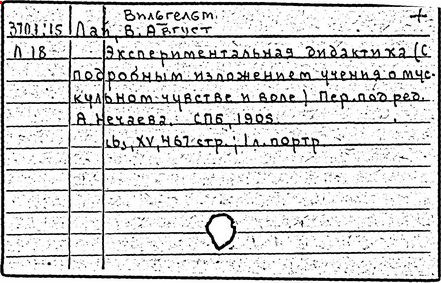 Вильгельм
370.1:15 Лай, В. Август +
Л 18 Экспериментальная дидактика (С
подробным изложением учения о мус-
кульном чувстве и воле) Пер. под ред.
А. Нечаева. СПб, 1905
XV, 467 стр.; 1 л. портр.